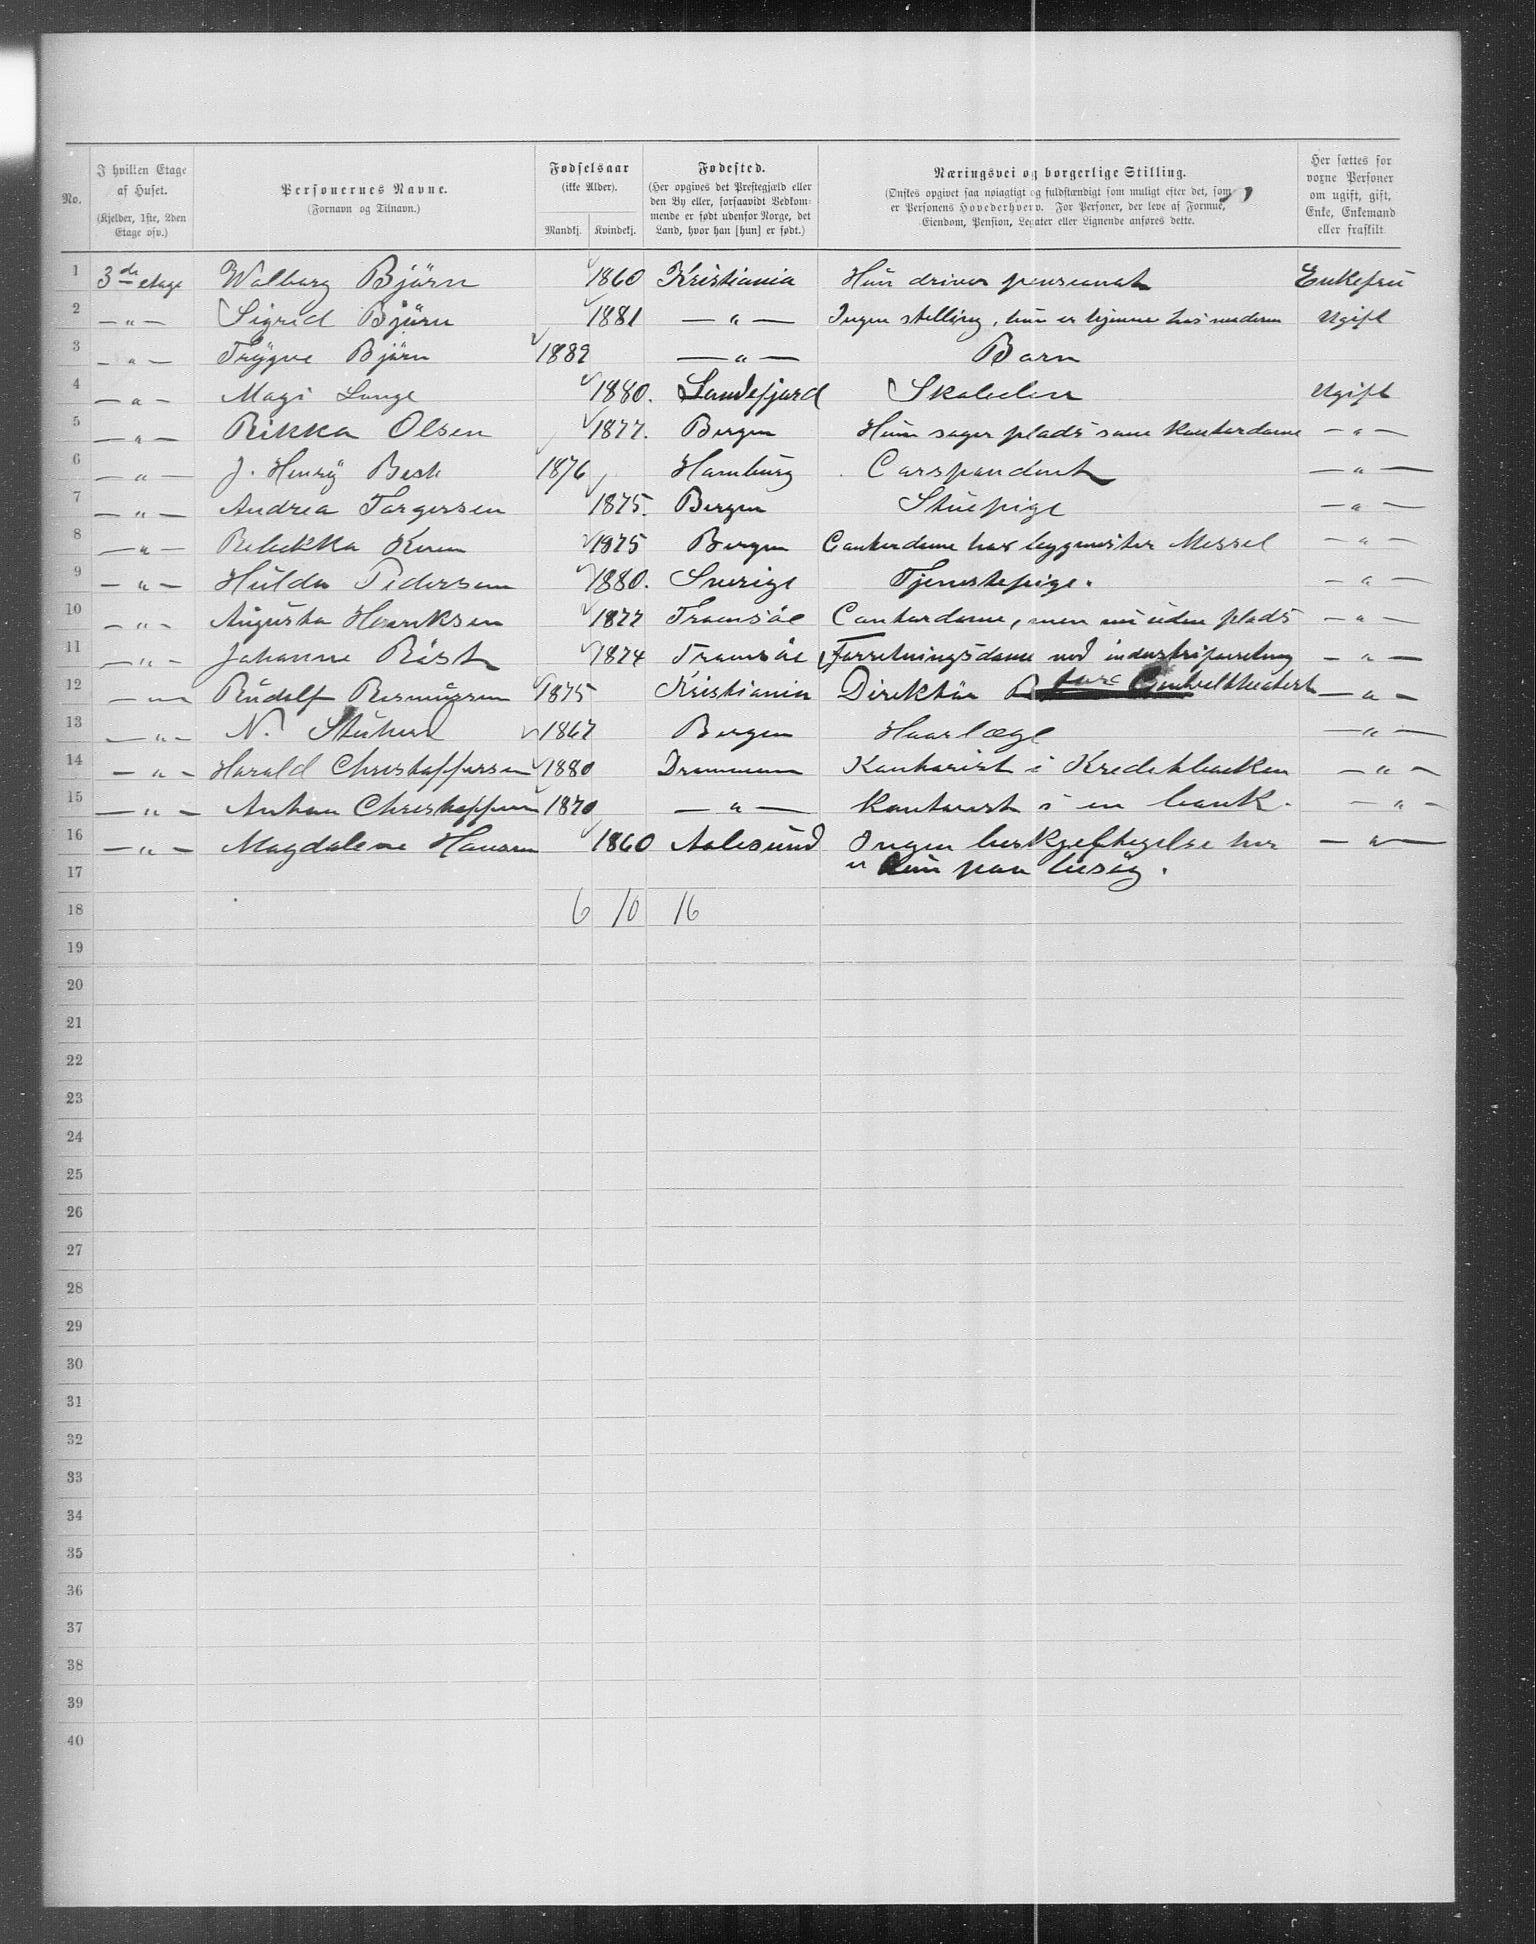 No.
I hvilken Etage af Huset.
(Kjelder, 1ste, 2den Etage osv.)
Personernes Navne.
(Fornavn og Tilnavn.)
Fødselsaar
(ikke Alder).
Mandkj. Kvindekj.
Fødested.
(Her opgives det Præstegjæld eller
den By eller, forsaavidt Vedkom-
mende er født udenfor Norge, det
Land, hvor han [hun] er født.)
Næringsvei og borgerlige Stilling.
(Ønskes opgivet saa nøiagtigt og fuldstændigt som muligt efter det, som
er Personens Hovederhverv. For Personer, der leve af Formue,
Eiendom, Pension, Legater eller Lignende anføres dette.
Her sættes for
voxne Personer
om ugift, gift,
Enke, Enkemand
eller fraskilt
1 3de etage Walborg Bjørn 1860 Kristiania Hun driver pensionat Enkefru
2 — " — Sigrid Bjørn 1881 — " — Ingen stilling, hun er hjemme hos moderen Ugift
3 — " — Trygve Bjørn 1889 — " — Barn
4 — " — Magi Lange 1880. Sandefjord Skoleelev Ugift
5 — " — Rikka Olsen 1877. Bergen Hun søger plads som Kontordame — " —
6 — " — J. Henry Besk 1876 Hamburg Corspondent — " —
7 — " — Andrea Torgersen 1875. Bergen Stuepige — " —
8 — " — Rebekka 1875 Bergen Contordame hos bygmester Messel — " —
9 — " — Hulda Pedersen 1880. Sverige Tjenestepige. — " —
10 — " — Augusta Henriksen 1877 Tromsøe Contordame, men nu uden plads — " —
11 — " — Johanne Røst 1874 Tromsøe Forretningsdame ved industriforretning — " —
12 — " — Rudolf Rasmussen 1875 Kristiania Direktør Centraltheatert — " —
13 — " — N. 1867 Bergen Haarlæge — " —
14 — " — Harald Christoffersen 1880 Drammen Kontorist i Kreditbanken — " —
15 — " — Anton Christoffersen 1870 — " — Kontorist i en bank. — " —
16 — " — Magdalene Hansen 1860 Aalesund Ingen beskjeftigelse her — " —
17 er kun paa besøg.
18 6 10 16
19
20
21
22
23
24
25
26
27
28
29
30
31
32
33
34
35
36
37
38
39
40